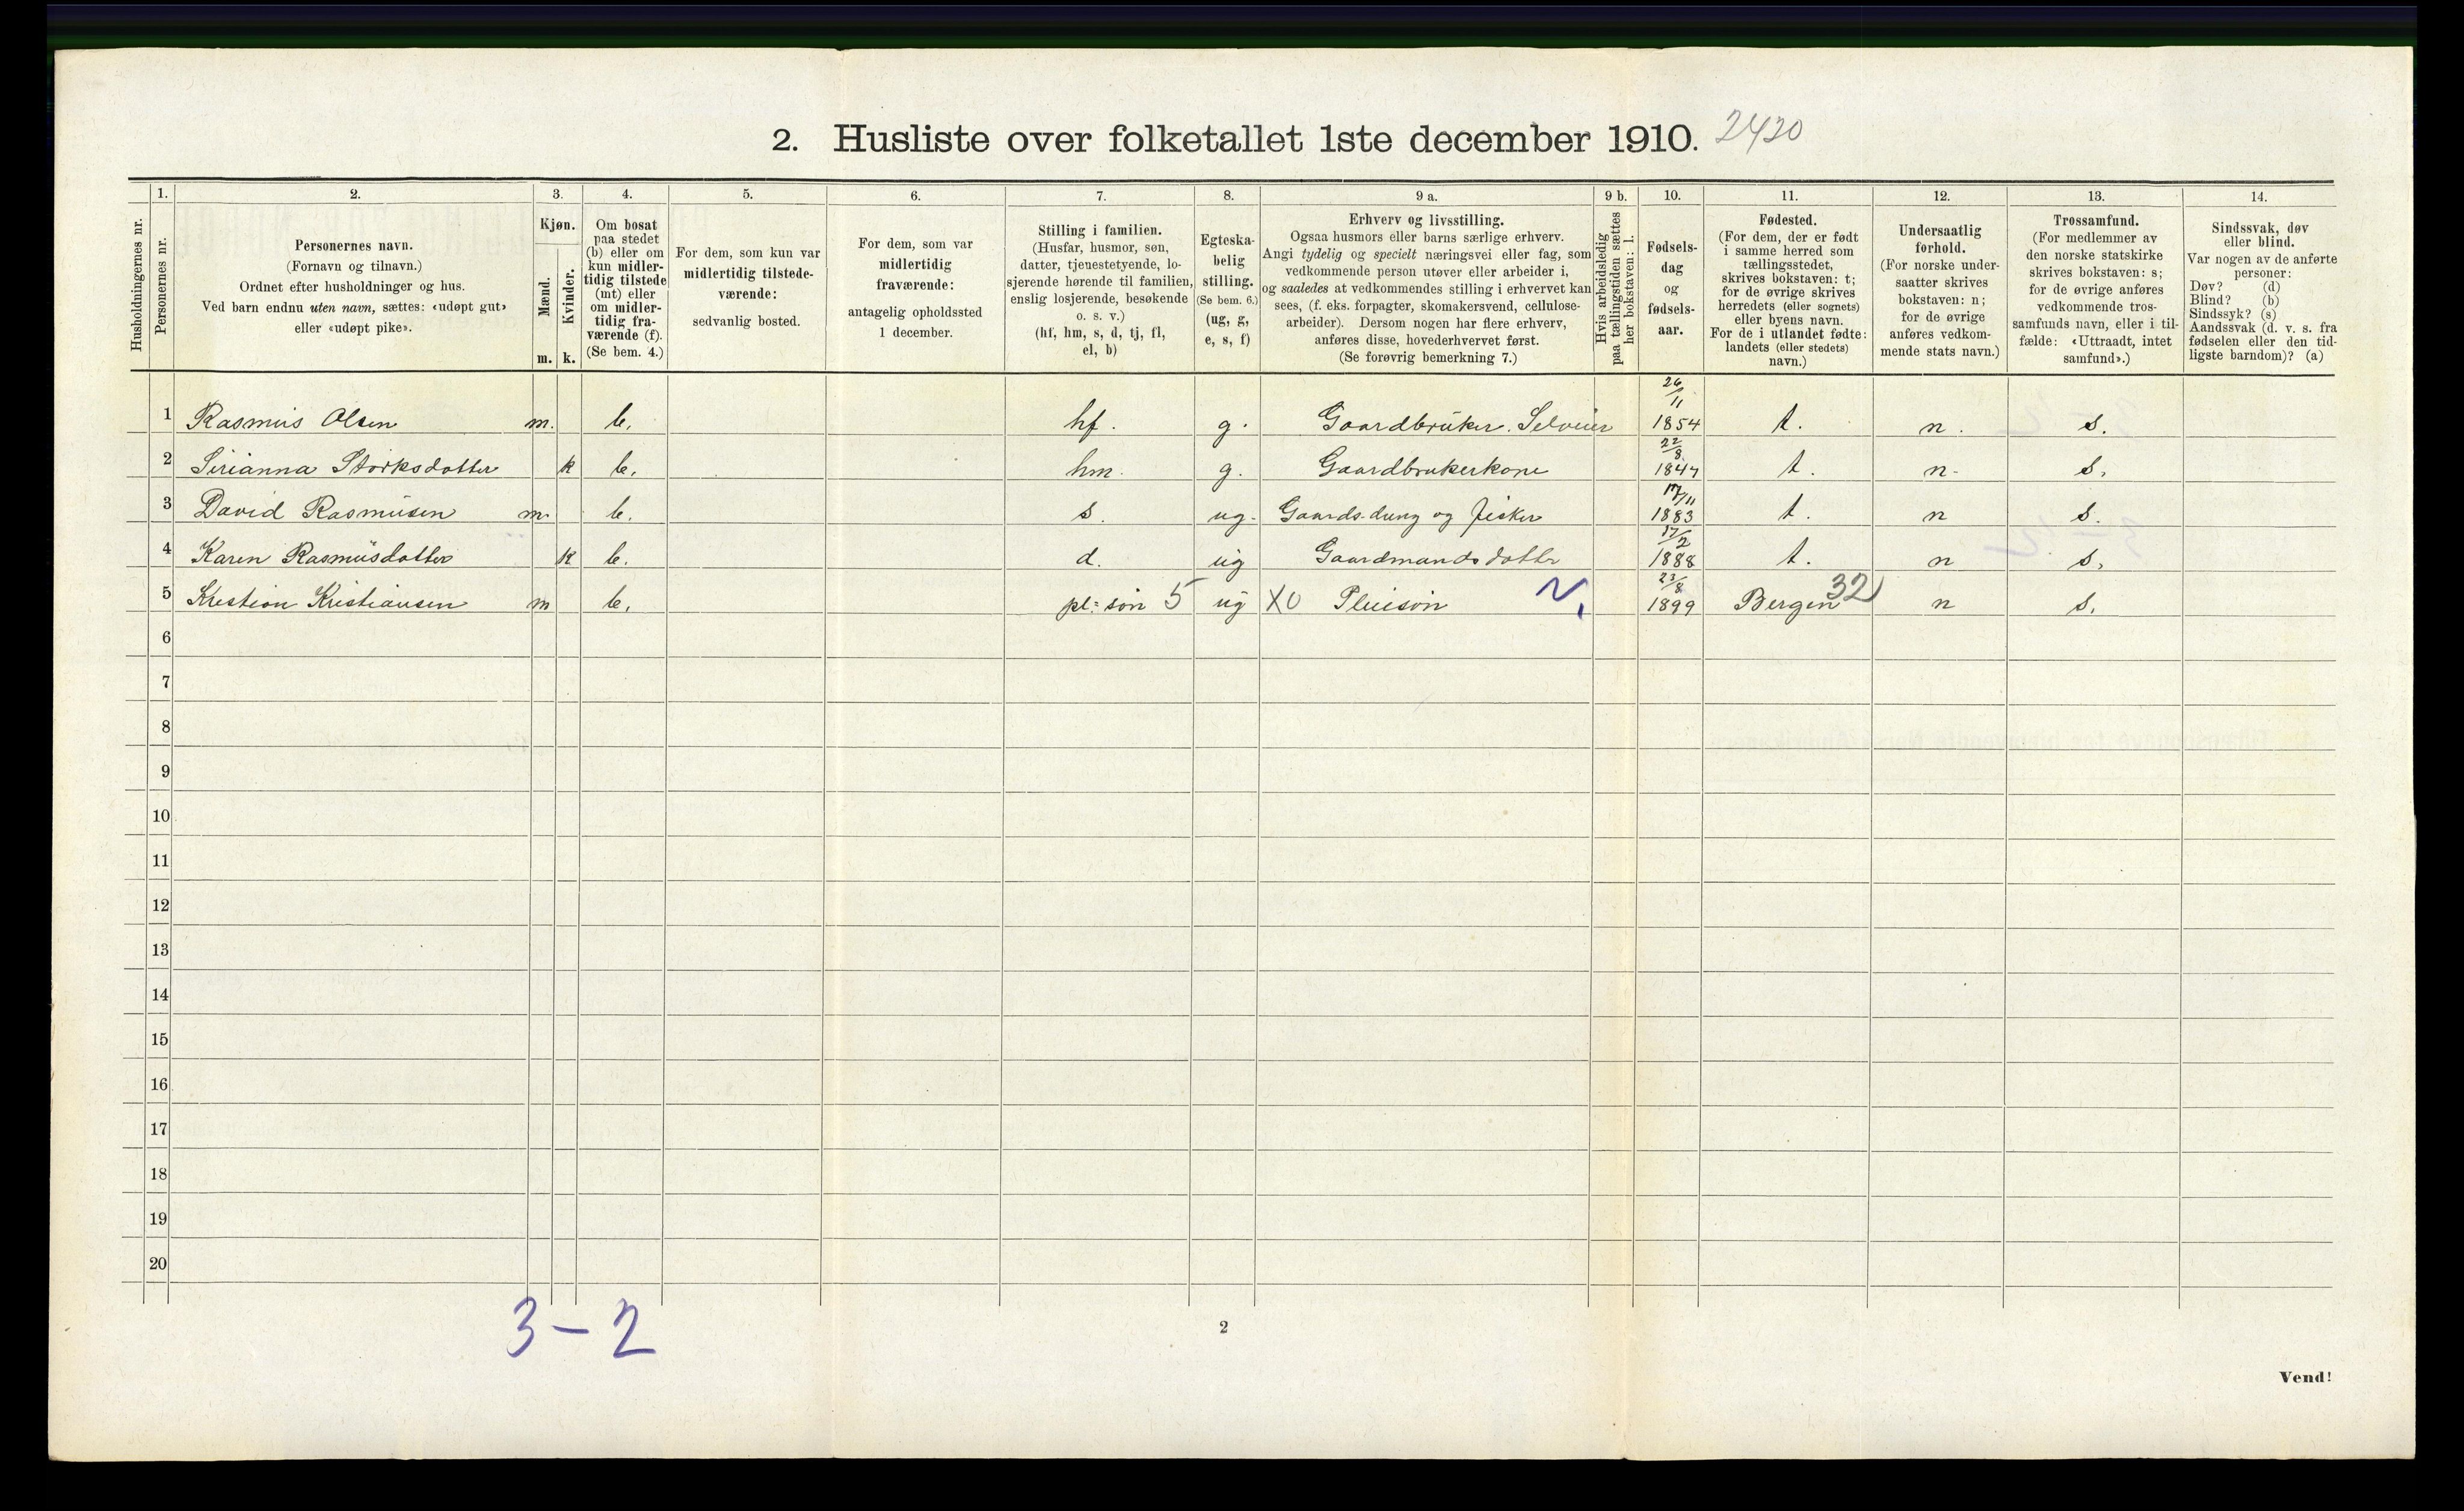 2. Husliste over folketallet 1ste december 1910. 2420
Husholdningernes nr.
1.
Personernes nr.
2.
Personernes navn.
(Fornavn og tilnavn.)
Ordnet efter husholdninger og hus.
Ved barn endnu uten navn, sættes: «udøpt gut»
eller «udøpt pike».
3.
Kjøn.
Mænd.
Kvinder.
m. k.
4.
Om bosat
paa stedet
(b) eller om
kun midler-
tidig tilstede
(mt) eller
om midler-
tidig fra-
værende (f).
(Se bem. 4.)
5.
For dem, som kun var
midlertidig tilstede-
værende:
sedvanlig bosted.
6.
For dem, som var
midlertidig
fraværende:
antagelig opholdssted
1 december.
7.
Stilling i familien.
(Husfar, husmor, søn,
datter, tjenestetyende, lo-
sjerende hørende til familien,
enslig losjerende, besøkende
o. s. v.)
(hf, hm, s, d, tj, fl,
el, b)
8.
Egteska-
belig
stilling.
(Se bem. 6.)
(ug, g,
e, s, f)
9 a.
Erhverv og livsstilling.
Ogsaa husmors eller barns særlige erhverv.
Angi tydelig og specielt næringsvei eller fag, som
vedkommende person utøver eller arbeider i,
og saaledes at vedkommendes stilling i erhvervet kan
sees, (f. eks. forpagter, skomakersvend, cellulose-
arbeider). Dersom nogen har flere erhverv,
anføres disse, hovederhvervet først.
(Se forøvrig bemerkning 7.)
9 b.
Hvis arbeidsledig
paa tællingstiden sættes
her bokstaven: l.
10.
Fødsels-
dag
og
fødsels-
aar.
11.
Fødested.
(For dem, der er født
i samme herred som
tællingsstedet,
skrives bokstaven: t;
for de øvrige skrives
herredets (eller sognets)
eller byens navn.
For de i utlandet fødte:
landets (eller stedets)
navn.)
12.
Undersaatlig
forhold.
(For norske under-
saatter skrives
bokstaven: n;
for de øvrige
anføres vedkom-
mende stats navn.)
13.
Trossamfund.
(For medlemmer av
den norske statskirke
skrives bokstaven: s;
for de øvrige anføres
vedkommende tros-
samfunds navn, eller i til-
fælde: «Uttraadt, intet
samfund».)
14.
Sindssvak, døv
eller blind.
Var nogen av de anførte
personer:
Døv? (d)
Blind? (b)
Sindssyk? (s)
Aandssvak (d. v. s. fra
fødselen eller den tid-
ligste barndom)? (a)
1 Rasmus Olsen m. b. hf. g. Gaardbruker. Selveier 26/11 1854 t. n. s.
2 Sirianna Størksdatter k b. hm. g. Gaardbrukerkone 22/8 1847 t. n. s.
3 David Rasmusen m. b. s. ug. Gaards-dreng og fisker 17/11 1883 t. n s.
4 Karen Rasmusdatter k b. d. ug Gaardmandsdatter 17/2 1888 t. n s.
5 Kristian Kristiansen m b. pl=søn 5 ug XO Pleiesøn 23/8 1899 Bergen 32 n s.
6
7
8
9
10
11
12
13
14
15
16
17
18
19
20
3-2
2
Vend!